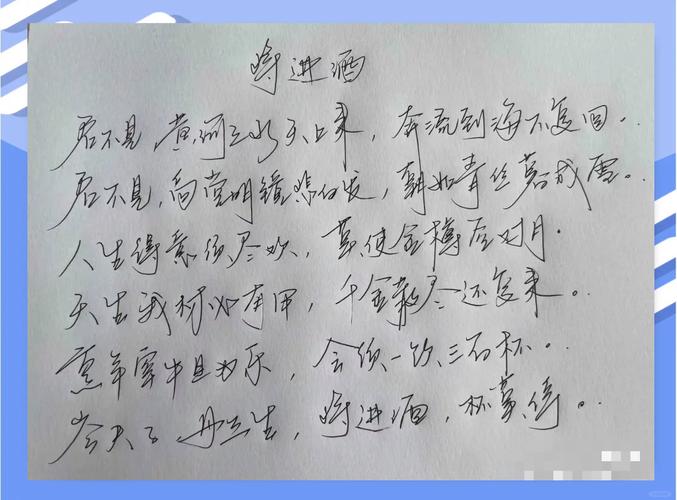 将进酒
君不见,黄河之水天上来,奔流到海不复回。
君不见,高堂明镜悲白发,朝如青丝暮成雪。
人生得意须尽欢,莫使金樽空对月.
天生我材必有用,千金散尽还复来。
烹羊宰牛且为乐,会须一饮三百杯。
岑夫子 丹丘生,将进酒,杯莫停。